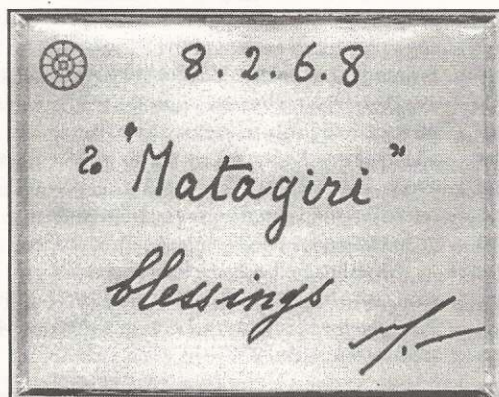 8.2.6.8
to "Matagiri"
blessings